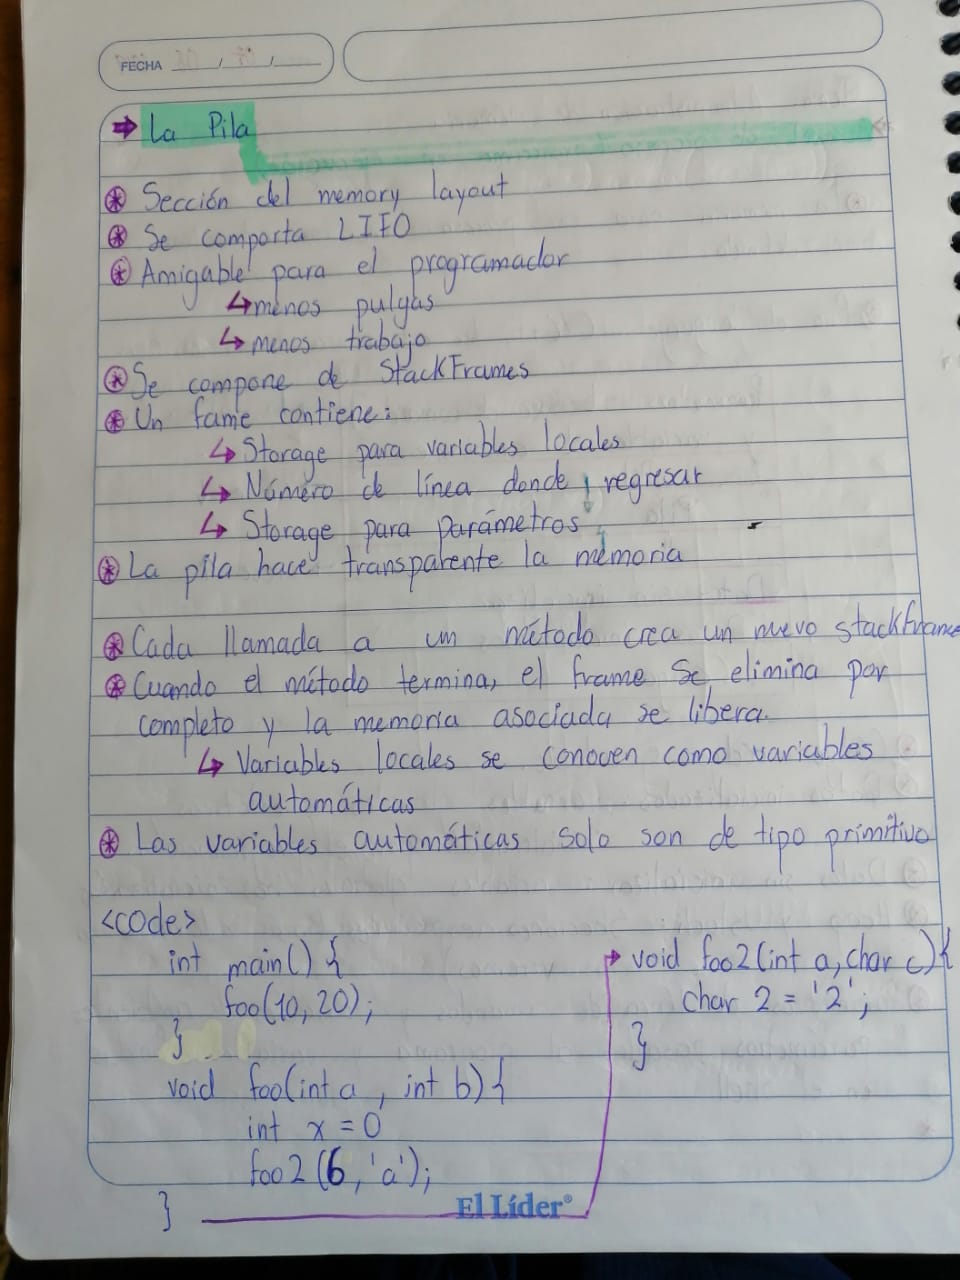 FECHA
→ La Pila
Sección del memory layout
Se comporta LIFO
Amigable para el programador
↳ menos pulgas
↳ menos trabajo
Se compone de StackFrames
Un fame contiene:
↳ Storage para variables locales
↳ Número de línea donde regresar
↳ Storage para parámetros
La pila hace transparente la memoria
Cada llamada a un método crea un nuevo stackFrame
Cuando el método termina, el frame se elimina por
completo y la memoria asociada se libera.
↳ Variables locales se conocen como variables
automáticas
Las variables automáticas solo son de tipo primitivo
<code>
int main() {
foo(10, 20);
}
void foo(int a, int b) {
int x = 0
foo2 (6, 'a');
}
void foo2(int a, char c) {
char 2 = '2';
}
El Líder®